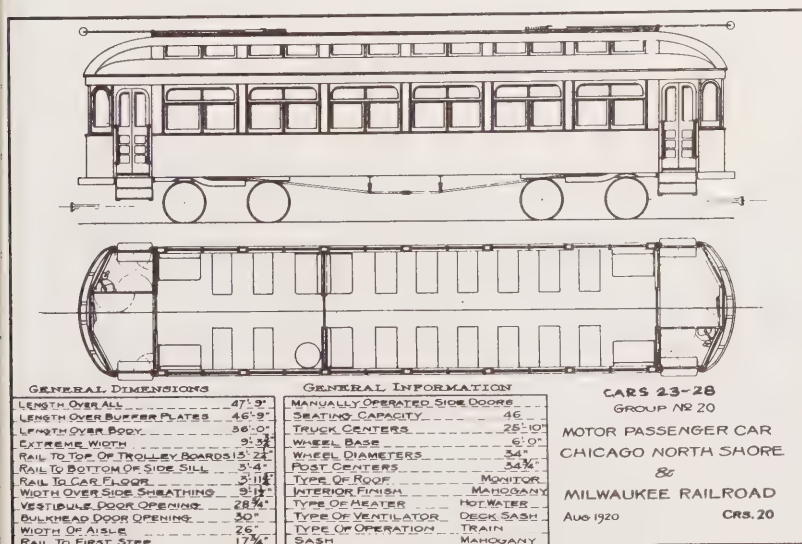 GENERAL DIMENSIONS
LENGTH OVER ALL 47'-9"
LENGTH OVER BUFFER PLATES 46'-9"
LENGTH OVER BODY 36'-0"
EXTREME WIDTH 9'-3¾"
RAIL TO TOP OF TROLLEY BOARDS 13'-2¼"
RAIL TO BOTTOM OF SIDE SILL 3'-4"
RAIL TO CAR FLOOR
WIDTH OVER SIDE SHEATHING 9'-1½"
VESTIBULE DOOR OPENING 28¾"
BULKHEAD DOOR OPENING 30"
WIDTH OF AISLE 26"
RAIL TO FIRST STEP 17¾"
GENERAL INFORMATION
MANUALLY OPERATED SIDE DOORS
SEATING CAPACITY 46
TRUCK CENTERS 25'-10"
WHEEL BASE 6'-0"
WHEEL DIAMETERS 34"
POST CENTERS 34¾"
TYPE OF ROOF MONITOR
INTERIOR FINISH MAHOGANY
TYPE OF HEATER HOT WATER
TYPE OF VENTILATOR DECK SASH
TYPE OF OPERATION TRAIN
SASH MAHOGANY
CARS 23-28
GROUP Nº 20
MOTOR PASSENGER CAR
CHICAGO NORTH SHORE
&
MILWAUKEE RAILROAD
AUG 1920 CRS.20